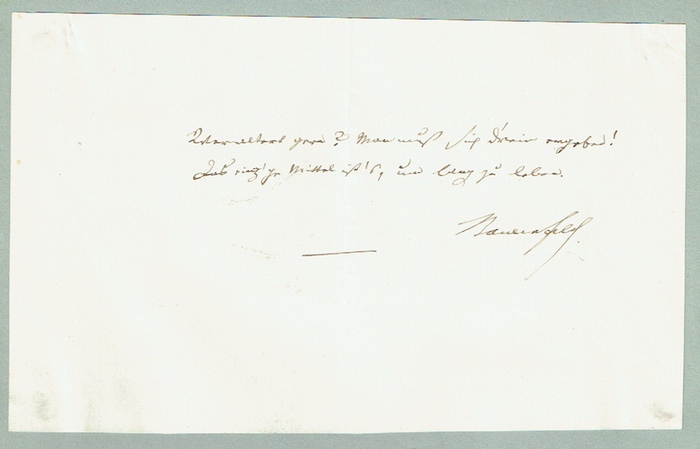 Wer altert gern? Man muß sich drein ergeben!
Das einz'ge Mittel ist's, um lang zu leben.
Bauernfeld